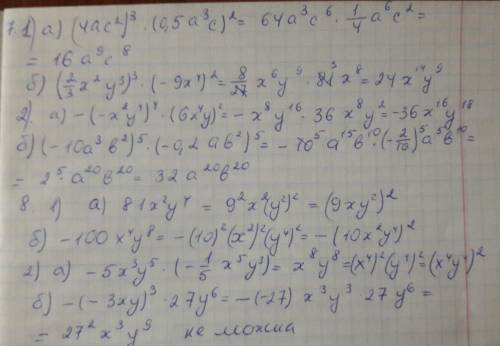 7.1) а) (4ac²)³ · (0,5a³c)² = 64a³c⁶ · 1/4 a⁶c² =
= 16a⁹c⁸
б) (2/3 x²y³)³ · (-9x⁴)² = 8/27 x⁶y⁹ · 81³x⁸ = 24x¹⁴y⁹
2) а) -(-x²y⁴)⁴ · (6x⁴y)² = -x⁸y¹⁶ · 36x⁸y² = -36x¹⁶y¹⁸
б) (-10a³b²)⁵ · (-0,2ab²)⁵ = -10⁵a¹⁵b¹⁰ · (-2/10)⁵a⁵b¹⁰ =
= 2⁵ · a²⁰b²⁰ = 32a²⁰b²⁰
8. 1) а) 81x²y⁴ = 9²x²(y²)² = (9xy²)²
б) -100x⁴y⁸ = -(10)²(x²)²(y⁴)² = -(10x²y⁴)²
2) а) -5x³y⁵ · (-1/5 x⁵y³) = x⁸y⁸ = (x⁴)²(y⁴)² = (x⁴y⁴)²
б) -(-3xy)³ · 27y⁶ = -(-27)x³y³ 27y⁶ =
= 27²x³y⁹ не можна